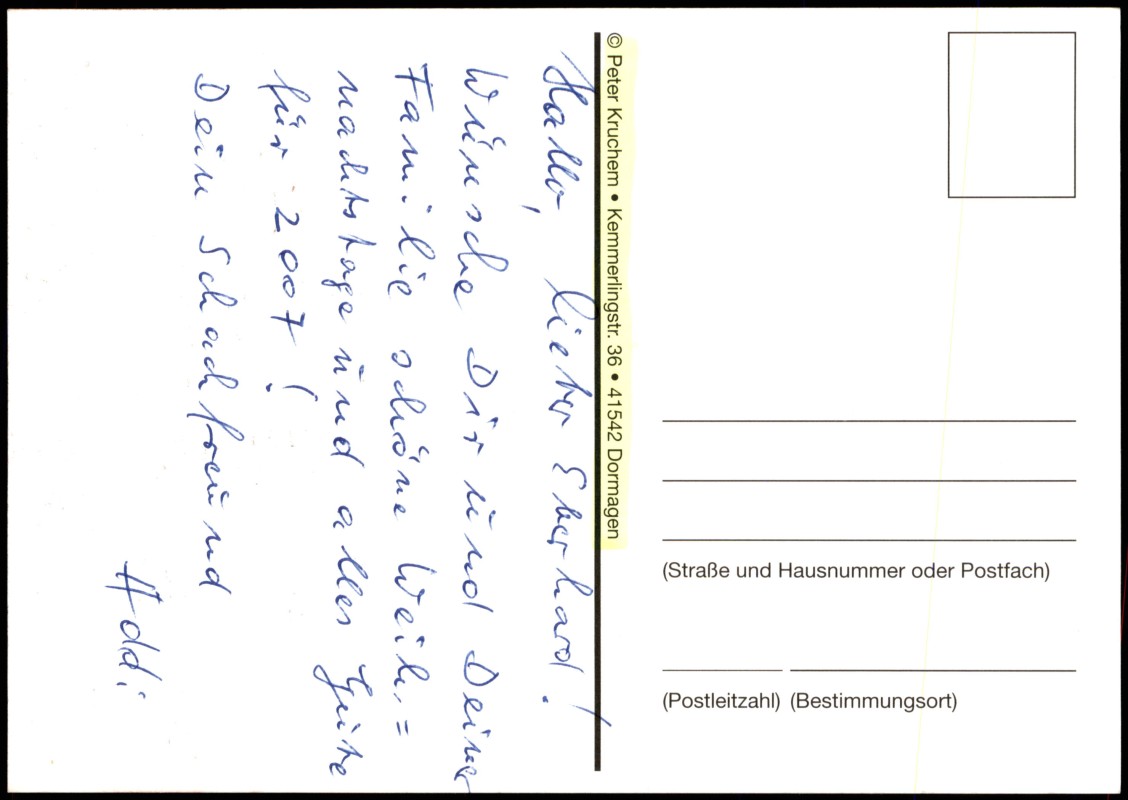 Hallo, lieber Eberhard!
Wünsche Dir und Deiner
Familie schöne Weih=
nachtstage und alles Gute
für 2007!
Dein Schachfreund
Addi
© Peter Kruchem • Kemmerlingstr. 36 • 41542 Dormagen
(Straße und Hausnummer oder Postfach)
(Postleitzahl) (Bestimmungsort)